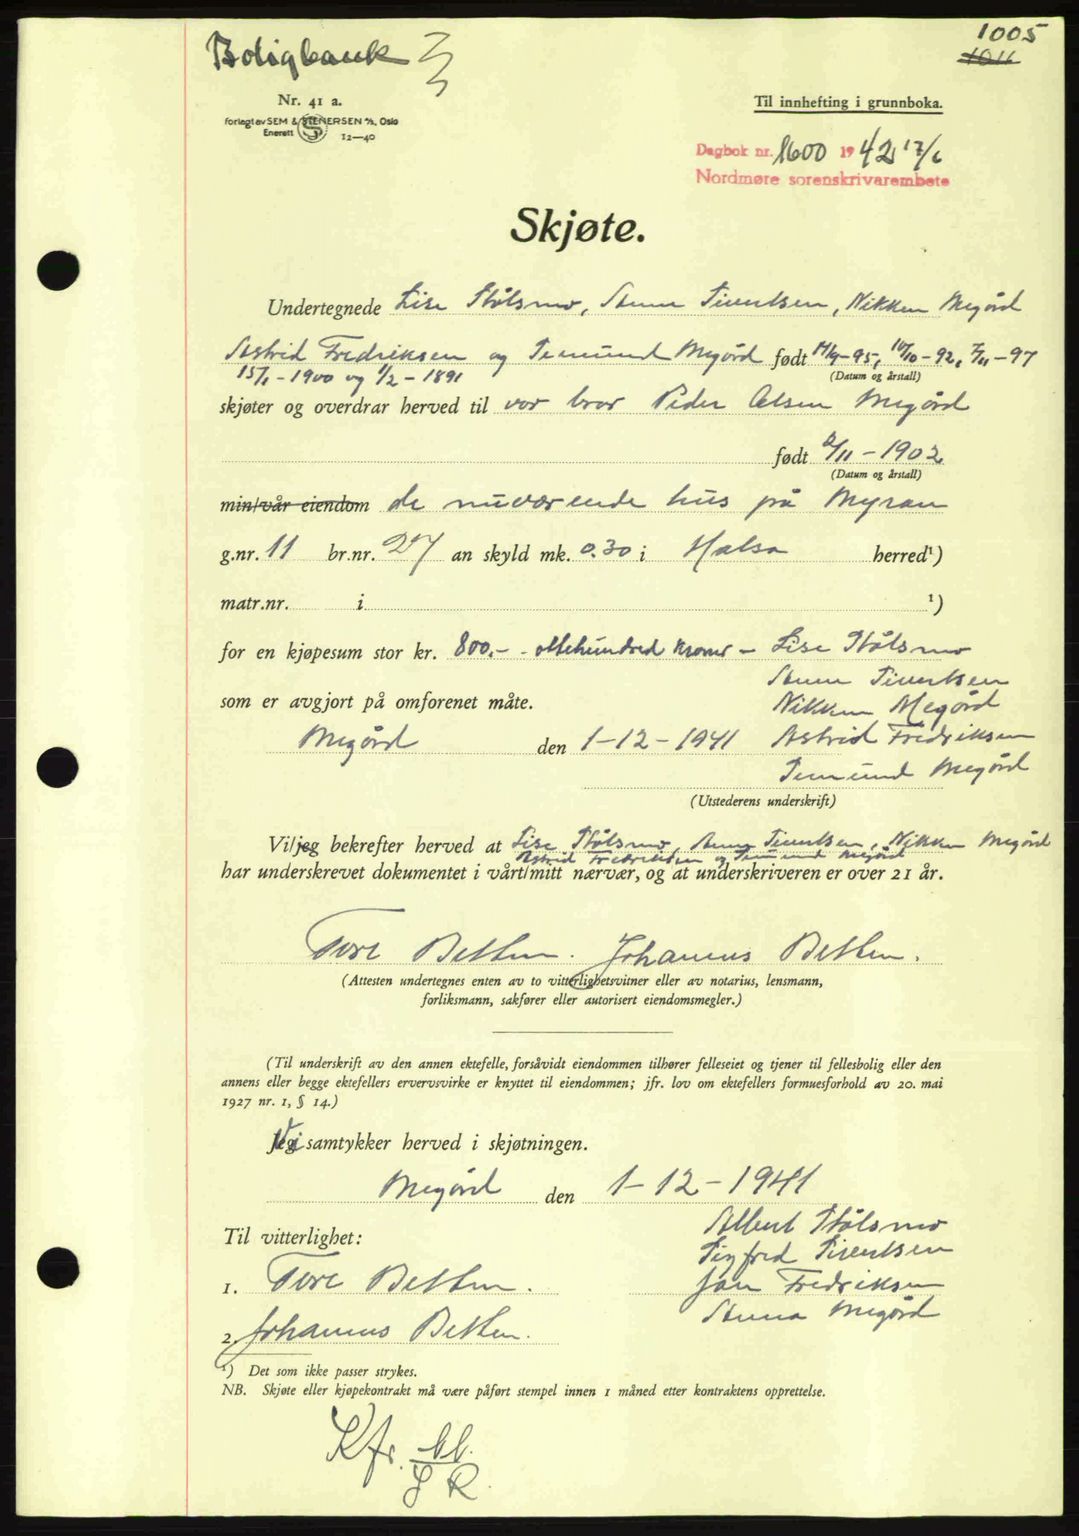 1005
~~1011~~
Boligbank
Nr. 41 a.
forlagt av SEM & STENERSEN A/S, Oslo
Enerett 12—40
Til innhefting i grunnboka.
Dagbok nr. 1600 1942 17/6
Nordmøre sorenskrivarembete
Skjøte.
Undertegnede Lise Stølsmo, Anne Sivertsen, Nikken Megård
Astrid Fredriksen og Temund Megård født 14/9-95, 10/10-92, 7/11-97
15/1-1900 og 1/2-1891 (Datum og årstall)
skjøter og overdrar herved til vor bror Peder Olsen Megård
født 2/11-1902
(Datum og årstall)
~~min/vår eiendom~~ de nuværende hus på Myran
g.nr. 11 br.nr. 27 an skyld mk. 0.30 i Halsa herred¹)
matr.nr. i ¹)
for en kjøpesum stor kr. 800.- - ottehundred kroner - Lise Stølsmo
Anne Sivertsen
som er avgjort på omforenet måte. Nikken Megård
Megård den 1-12-1941 Astrid Fredriksen
Temund Megård
(Utstederens underskrift)
Vi/~~jeg~~ bekrefter herved at Lise Stølsmo, Anne Sivertsen, Nikken Megård
Astrid Fredriksen og Temund Megård
har underskrevet dokumentet i vårt/mitt nærvær, og at underskriveren er over 21 år.
Tore Betten. Johannes Betten.
(Attesten undertegnes enten av to vitterlighetsvitner eller av notarius, lensmann,
forliksmann, sakfører eller autorisert eiendomsmegler.)
(Til underskrift av den annen ektefelle, forsåvidt eiendommen tilhører felleseiet og tjener til fellesbolig eller den
annens eller begge ektefellers ervervsvirke er knyttet til eiendommen; jfr. lov om ektefellers formuesforhold av 20. mai
1927 nr. 1, § 14.)
Vi samtykker herved i skjøtningen.
Megård den 1-12-1941
Albert Stølsmo
Til vitterlighet:
Sigfred Sivertsen
1. Tore Betten. Jon Fredriksen
Anna Megård
2. Johannes Betten.
¹) Det som ikke passer strykes.
NB. Skjøte eller kjøpekontrakt må være påført stempel innen 1 måned etter kontraktens opprettelse.
Kfr.